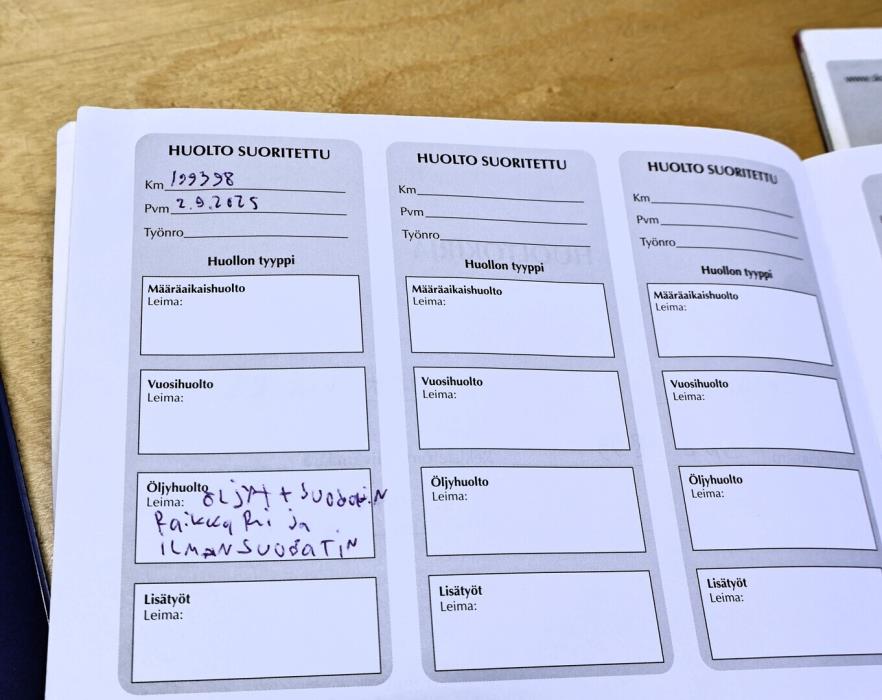 HUOLTO SUORITETTU
Km 199398
Pvm 2.9.2025
Työnro
Huollon tyyppi
Määräaikaishuolto
Leima:
Vuosihuolto
Leima:
Öljyhuolto
Leima: ÖLJYt + SUODATIN
Raikka Ri ja
ILMANSUODATIN
Lisätyöt
Leima:
HUOLTO SUORITETTU
Km
Pvm
Työnro
Huollon tyyppi
Määräaikaishuolto
Leima:
Vuosihuolto
Leima:
Öljyhuolto
Leima:
Lisätyöt
Leima:
HUOLTO SUORITETTU
Km
Pvm
Työnro
Huollon tyyppi
Määräaikaishuolto
Leima:
Vuosihuolto
Leima:
Öljyhuolto
Leima:
Lisätyöt
Leima: